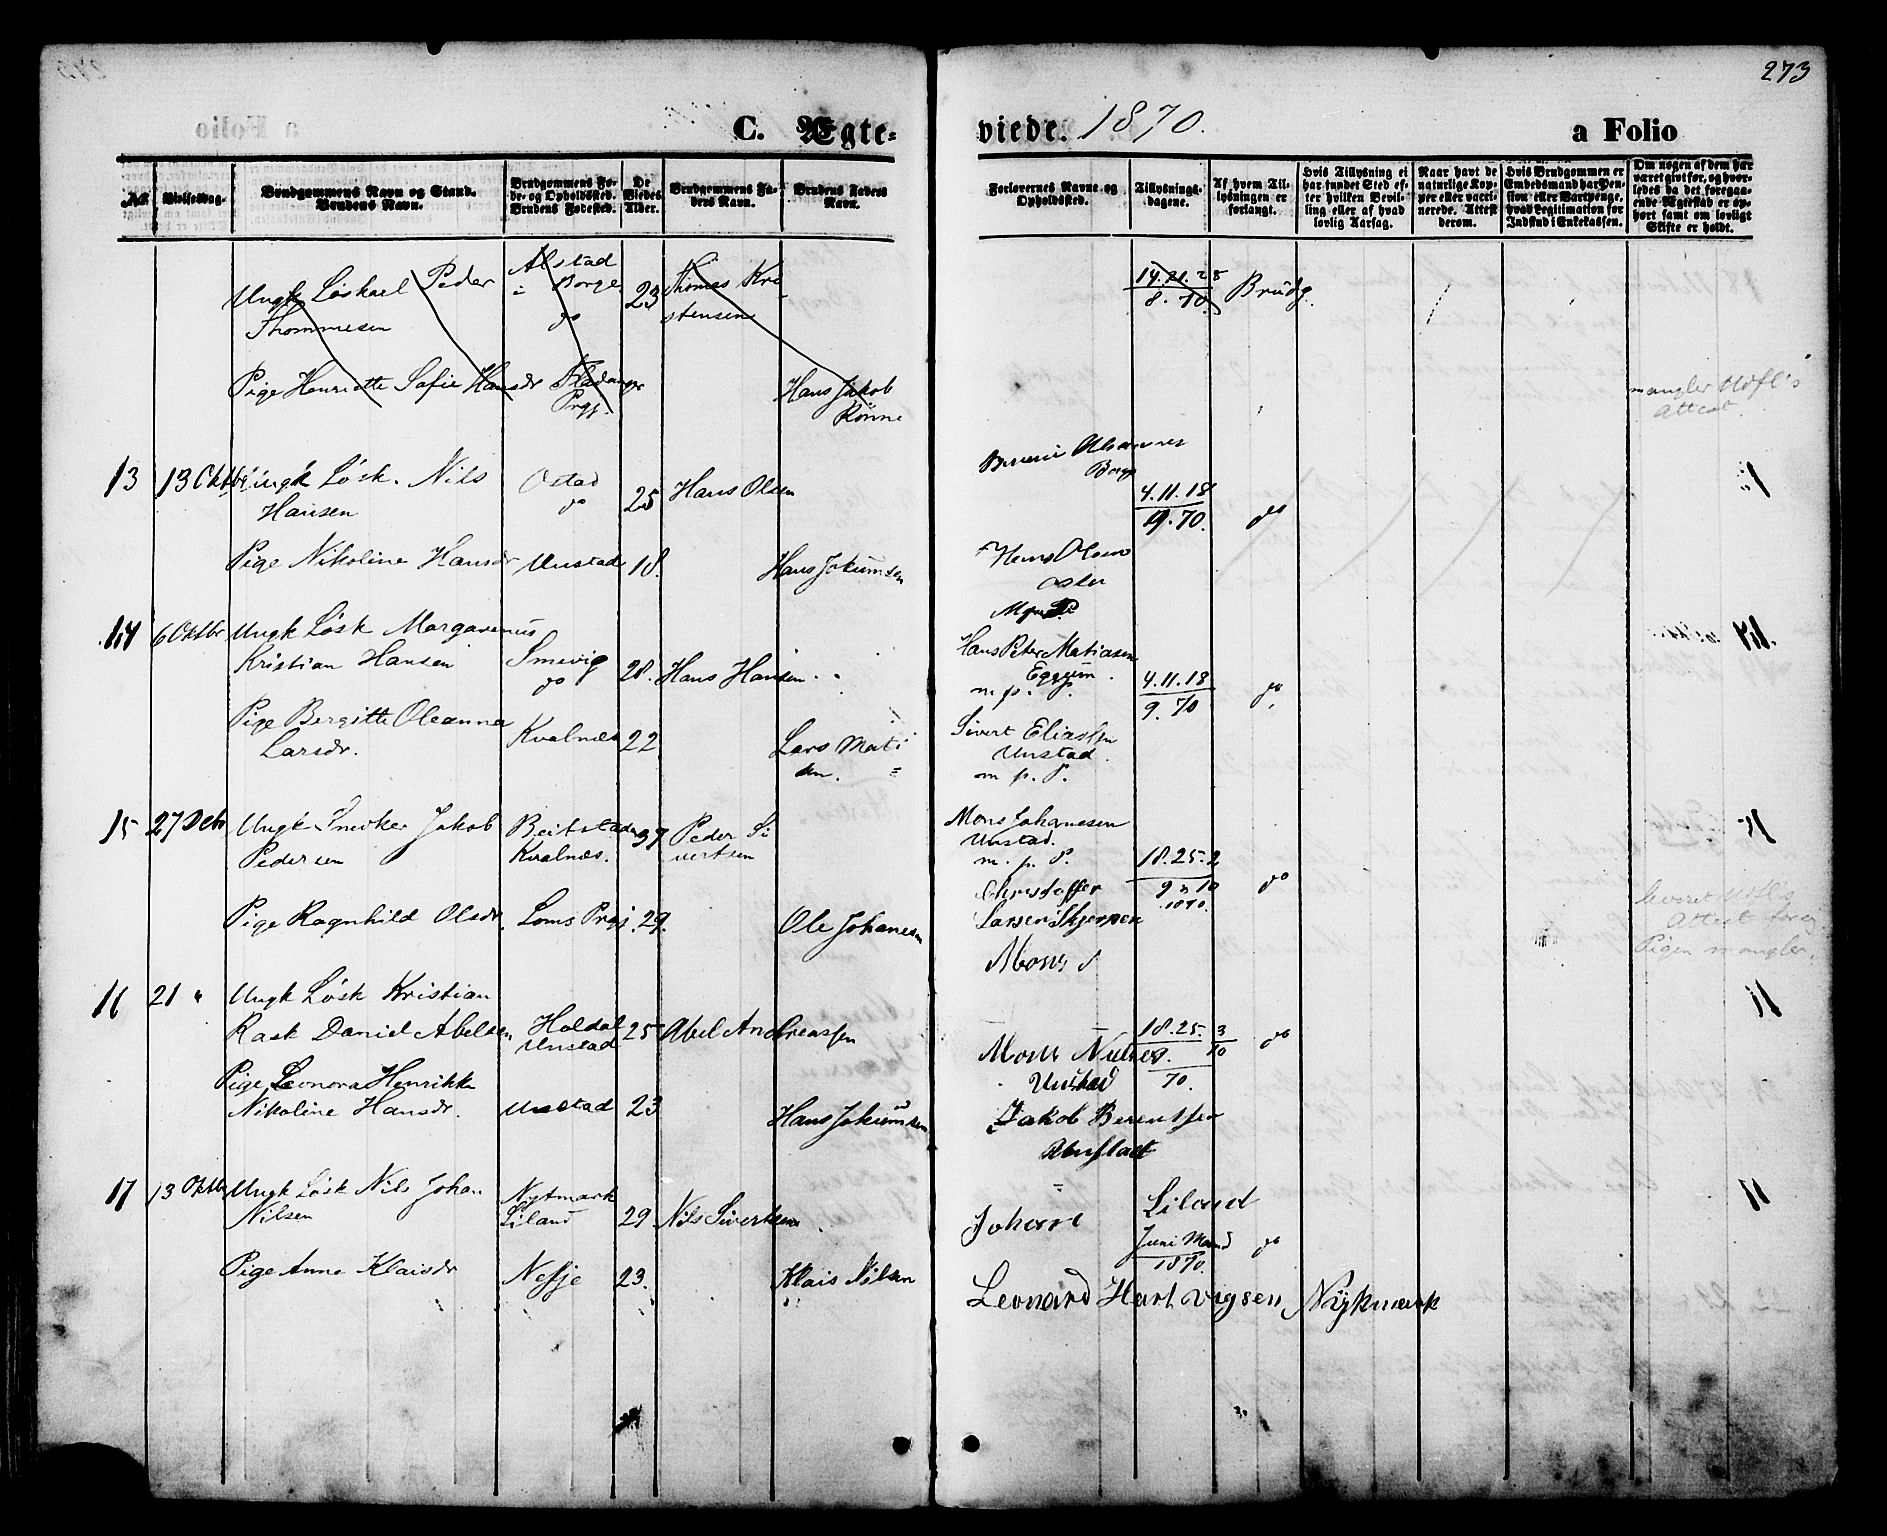 273
C. Ægte-
viede. 1870.
a Folio
No.
Vielsesdag.
Brudgommens Navn og Stand.
Brudens Navn.
Brudgommens Fø-
de- og Opholdssted.
Brudens Fødested.
De
Viedes
Alder.
Brudgommens Fa-
ders Navn.
Brudens Faders
Navn.
Forlovernes Navne og
Opholdssted.
Tillysnings-
dagene.
Af hvem Til-
lysningen er
forlangt.
Hvis Tillysning ei
har fundet Sted ef-
ter hvilken Bevil-
ling eller af hvad
lovlig Aarsag.
Naar havt de
naturlige Kop-
per eller vacci-
nerede. Attest
derom.
Hvis Brudgommen er
Embedsmand har Pen-
sion eller Vartpenge,
hvad Legitimation for
Indskud i Enkekassen.
Om nogen af dem har
været gift før, og hvor-
ledes da det foregaa-
ende Ægteskab er op-
hørt samt om lovligt
Skifte er holdt.
Ungk Løskarl Peder
Thommesen
Alstad
i Borge
do
23
Thomas Kri
stensen
14.21.28
8. 70
Brudg.
Pige Henriette Sofie Hansdr
Fladanger
Prgj.
Hans Jakob
Rønne
mangler
Attest.
13
13 Oktbr
Ungk Løsk. Nils
Hansen
Ostad
do
25
Hans Olsen
Borge
4.11.18
9.70.
do
Pige Nikoline Hansdr
Unstad
18.
Hans Jokumsen
Hans Olsen
14
6 Oktbr
Ungk Løsk Margarenus
Kristian Hansen
Smevig
do
28.
Hans Hansen
Hans Peter Matiasen
Eggum.
m. p. P.
4.11.18
9. 70
do
Pige Bergitte Oleanna
Larsdr.
Kvalnæs
22
Lars Mati
sen.
Sivert Eliassen
Unstad.
m. p. P.
15
27 Octbr
Ungk Snedker Jakob
Pedersen
Beitstaden
Kvalnæs.
37
Peder Si
vertsen
Mons Johanesen
Unstad.
m. p. P.
18.25.2
9 n 10
1870.
do
Pige Ragnhild Olsdr.
Loms Prgj.
29.
Ole Johanesen
Christoffer
Larsen Skjerpen
Attest for sig
Pigen mangler.
16
21 "
Ungk Løsk Kristian
Rask Daniel Abelsen
Holdal
Unstad
25
Abel Andreassen
Mons Nielsen
Unstad
18.25. 3
9. 10
70.
do
Pige Leonora Henrikke
Nikoline Hansdr.
Unstad
23
Hans Jokumsen
Jakob Berentsen
Unstad
17
13 Oktbr
Ungk Løsk Nils Johan
Nilsen
Nykmark
Liland
29
Nils Sivertsen
Johan Liland
Juni Maaned
1870.
do
Pige Anne Klaisdr
Nesje
23.
Klais Nilsen
Leonard Hartvigsen Nykmark